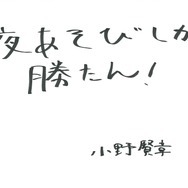 夜あそびしか
勝たん!
小野賢章